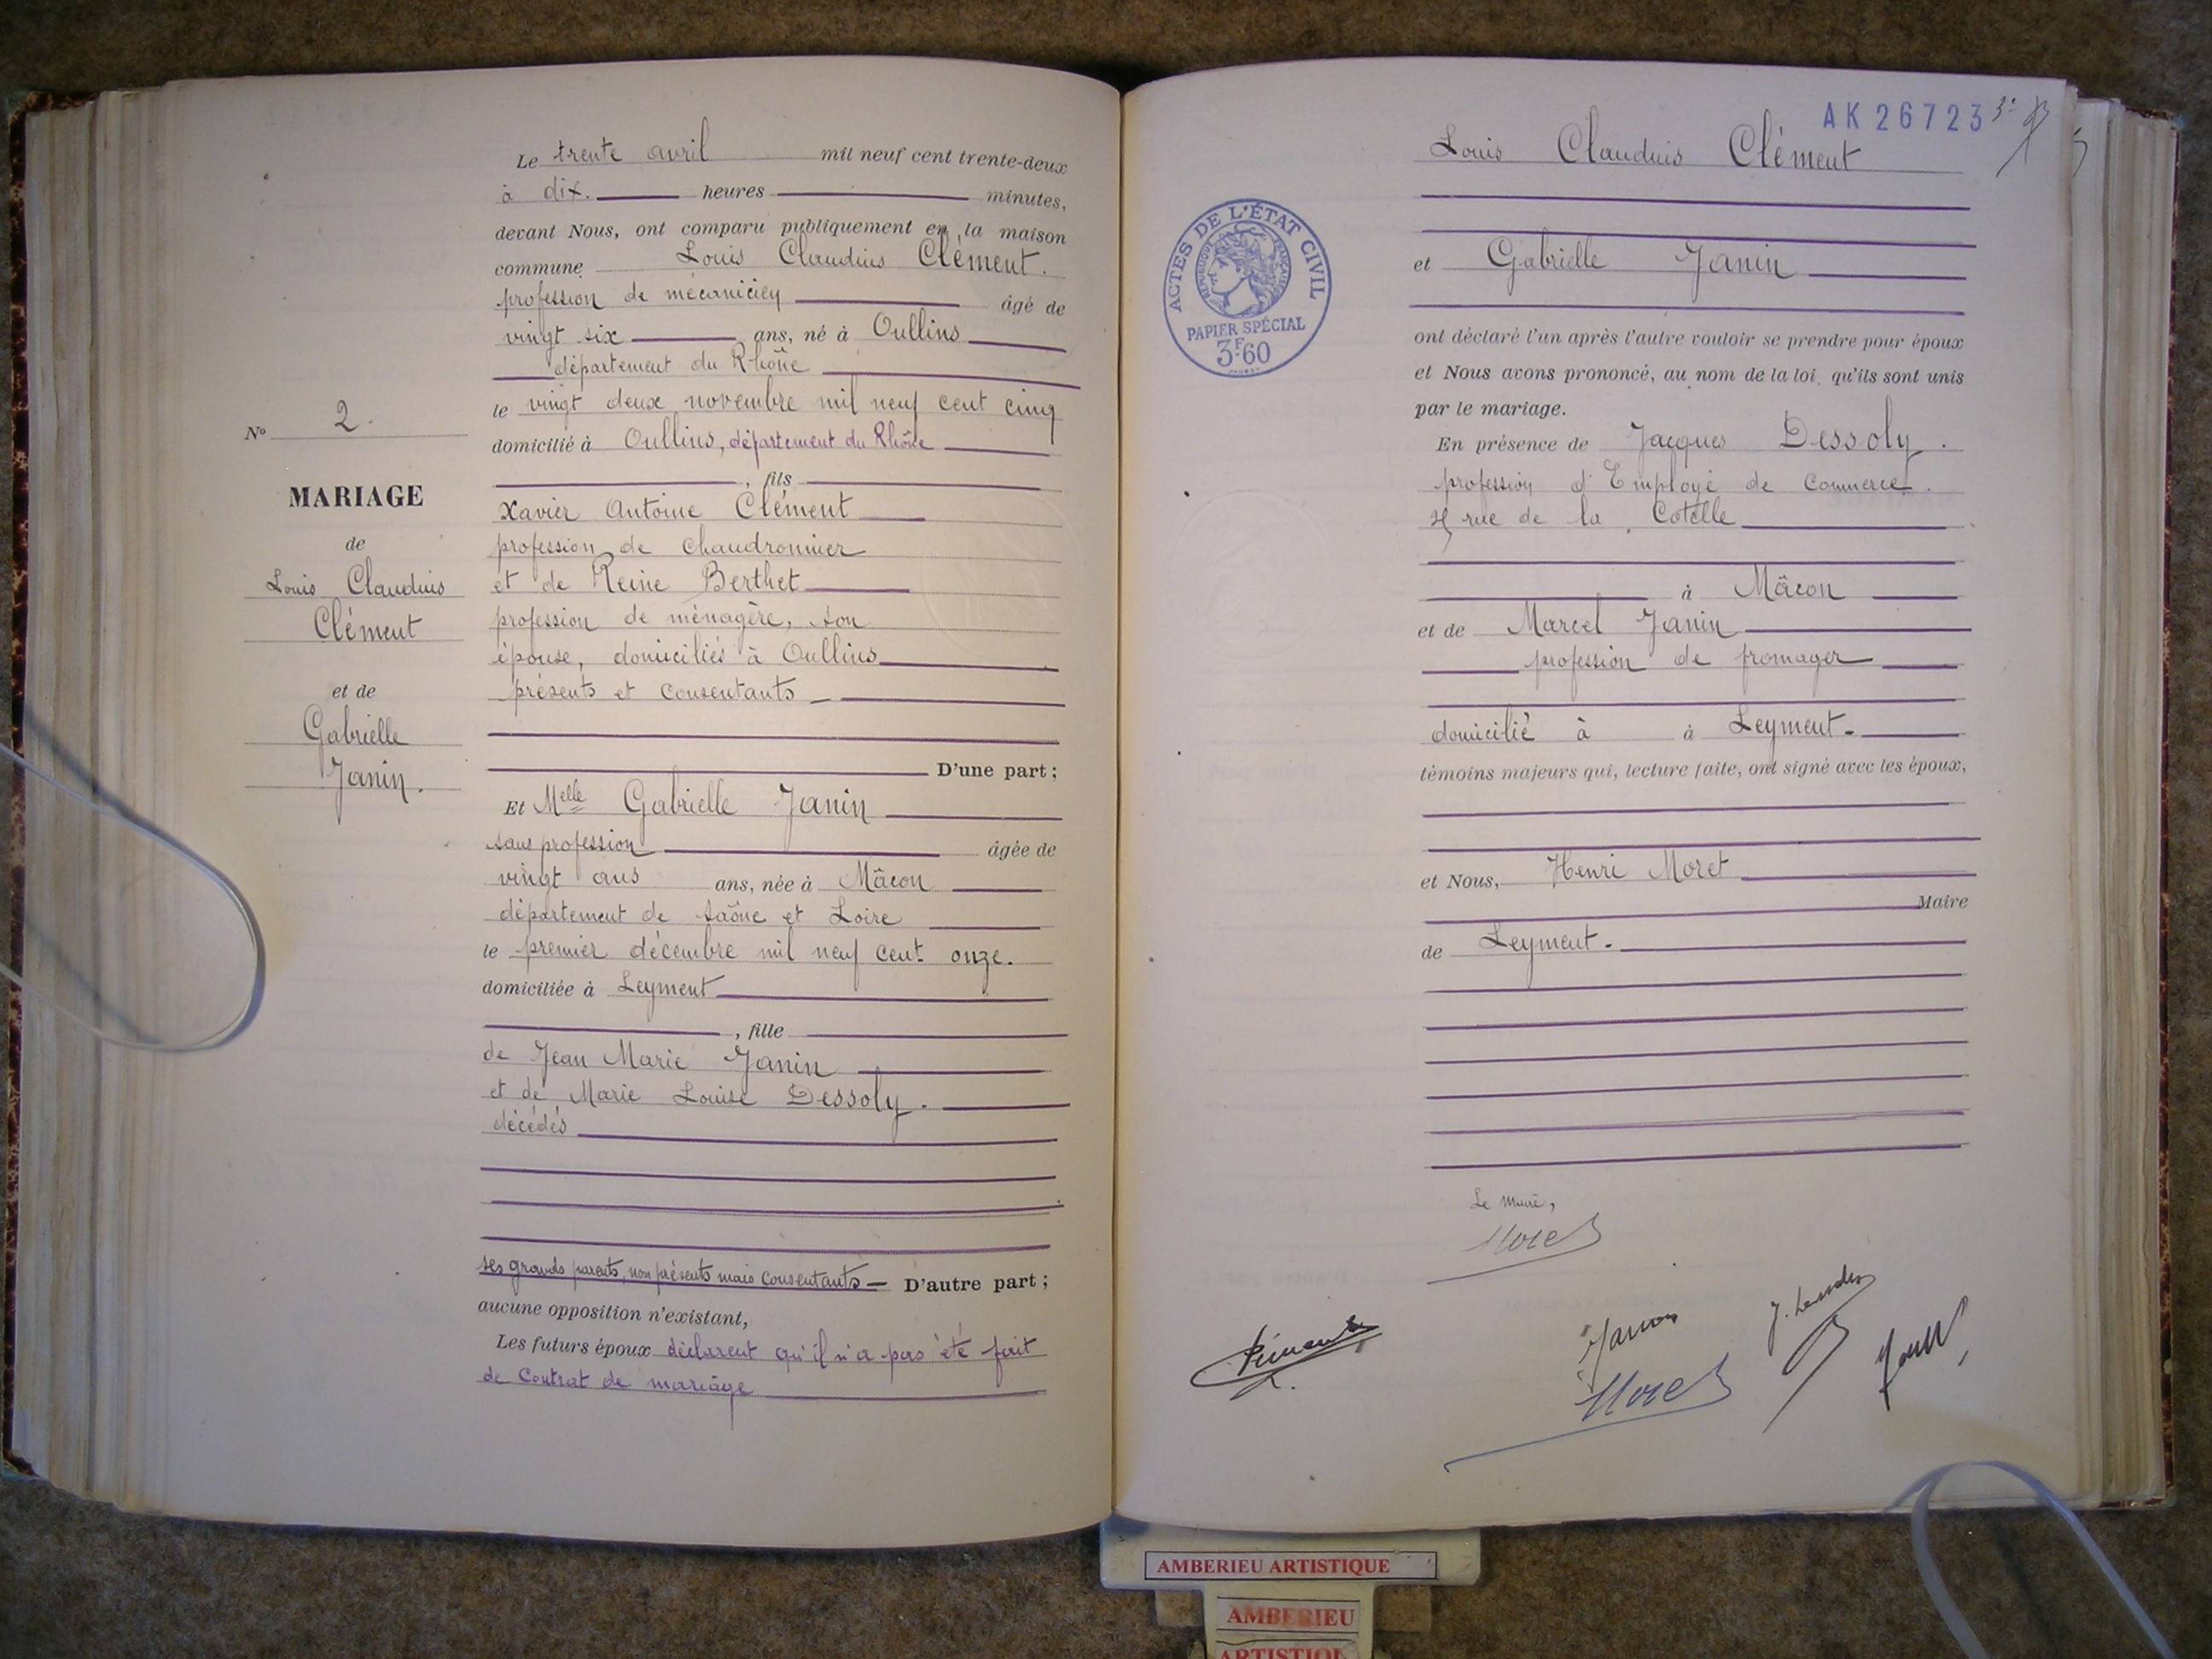 Le trente avril mil neuf cent trente-deux
à dix. heures minutes,
devant Nous, ont comparu publiquement en la maison
commune Louis Claudius Clément.
profession de mécanicien âgé de
vingt six ans, né à Oullins
département du Rhône
le vingt deux novembre mil neuf cent cinq
domicilié à Oullins, département du Rhône
, fils
Xavier Antoine Clément
profession de Chaudronnier
et de Reine Berthet
profession de ménagère, son
épouse, domiciliés à Oullins
présents et consentants
D'une part;
Et Melle Gabrielle Janin
sans profession âgée de
vingt ans ans, née à Mâcon
département de Saône et Loire
le premier décembre mil neuf cent onze.
domiciliée à Leyment
, fille
de Jean Marie Janin
et de Marie Louise Dessoly.
décédés
ses grands parents, non présents mais consentants — D'autre part;
aucune opposition n'existant,
Les futurs époux déclarent qu'il n'a pas été fait
de Contrat de mariage
No 2.
MARIAGE
de
Louis Claudius
Clément
et de
Gabrielle
Janin.
AK 26723
Louis Claudius Clément
et Gabrielle Janin
ont déclaré l'un après l'autre vouloir se prendre pour époux
et Nous avons prononcé, au nom de la loi, qu'ils sont unis
par le mariage.
En présence de Jacques Dessoly.
profession d'Employé de Commerce.
rue de la Cotelle
à Mâcon
et de Marcel Janin
profession de fromager
domicilié à à Leyment.
témoins majeurs qui, lecture faite, ont signé avec les époux,
et Nous, Henri Moret
Maire
de Leyment.
ACTES DE L'ÉTAT CIVIL
RÉPUBLIQUE FRANÇAISE
PAPIER SPÉCIAL
3F.60
Le maire,
Moret
Moret
AMBERIEU ARTISTIQUE
AMBERIEU
ARTISTIQU